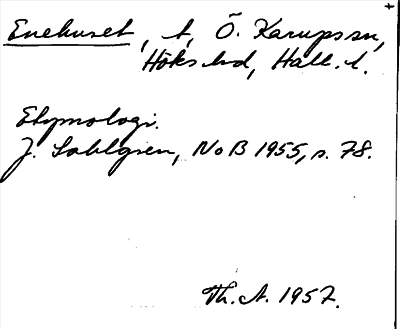 Enehuset, t, Ö. Karups sn,
Höks hd, Hall. l.
Etymologi.
J. Sahlgren, NoB 1955, s. 78.
Th. A. 1957.